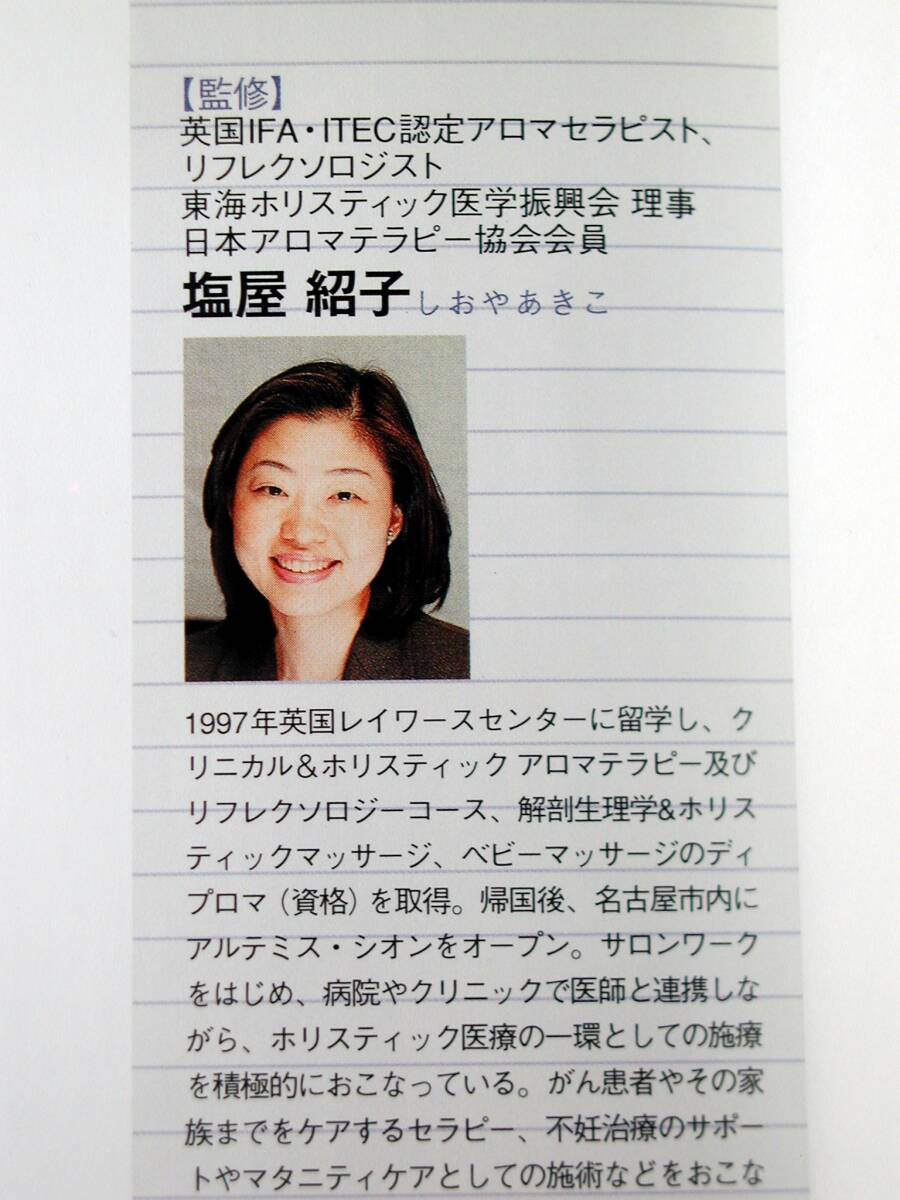 【監修】
英国IFA・ITEC認定アロマセラピスト、
リフレクソロジスト
東海ホリスティック医学振興会 理事
日本アロマテラピー協会会員
塩屋 紹子 しおやあきこ
1997年英国レイワースセンターに留学し、ク
リニカル＆ホリスティック アロマテラピー及び
リフレクソロジーコース、解剖生理学&ホリス
ティックマッサージ、ベビーマッサージのディ
プロマ（資格）を取得。帰国後、名古屋市内に
アルテミス・シオンをオープン。サロンワーク
をはじめ、病院やクリニックで医師と連携しな
がら、ホリスティック医療の一環としての施療
を積極的におこなっている。がん患者やその家
族までをケアするセラピー、不妊治療のサポー
トやマタニティケアとしての施術などをおこな